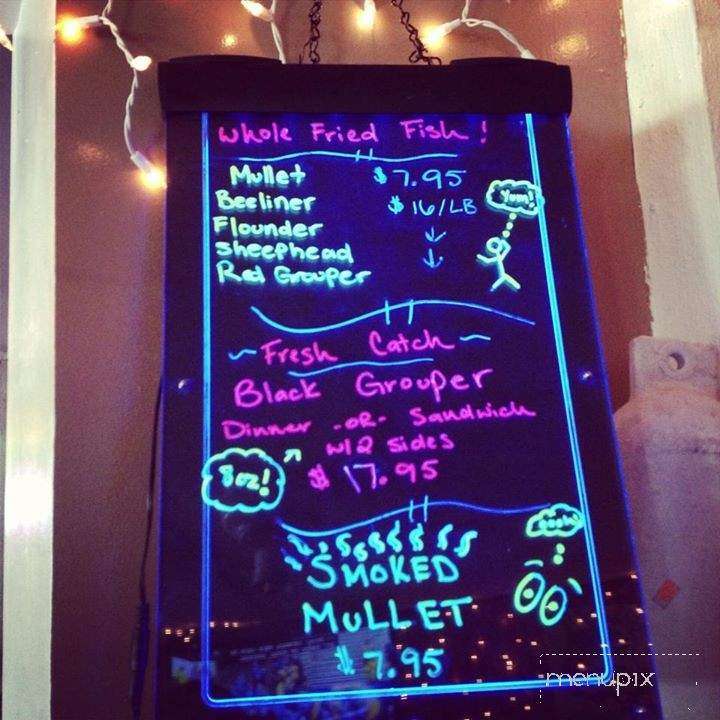 Whole Fried Fish!
Mullet $7.95
Beeliner $16/LB
Flounder ↓
Sheephead ↓
Red Grouper
Yum!
~Fresh Catch~
Black Grouper
Dinner -OR- Sandwich
w/2 sides
8oz! $17.95
oooh!
SMOKED
MULLET
$7.95
menupix